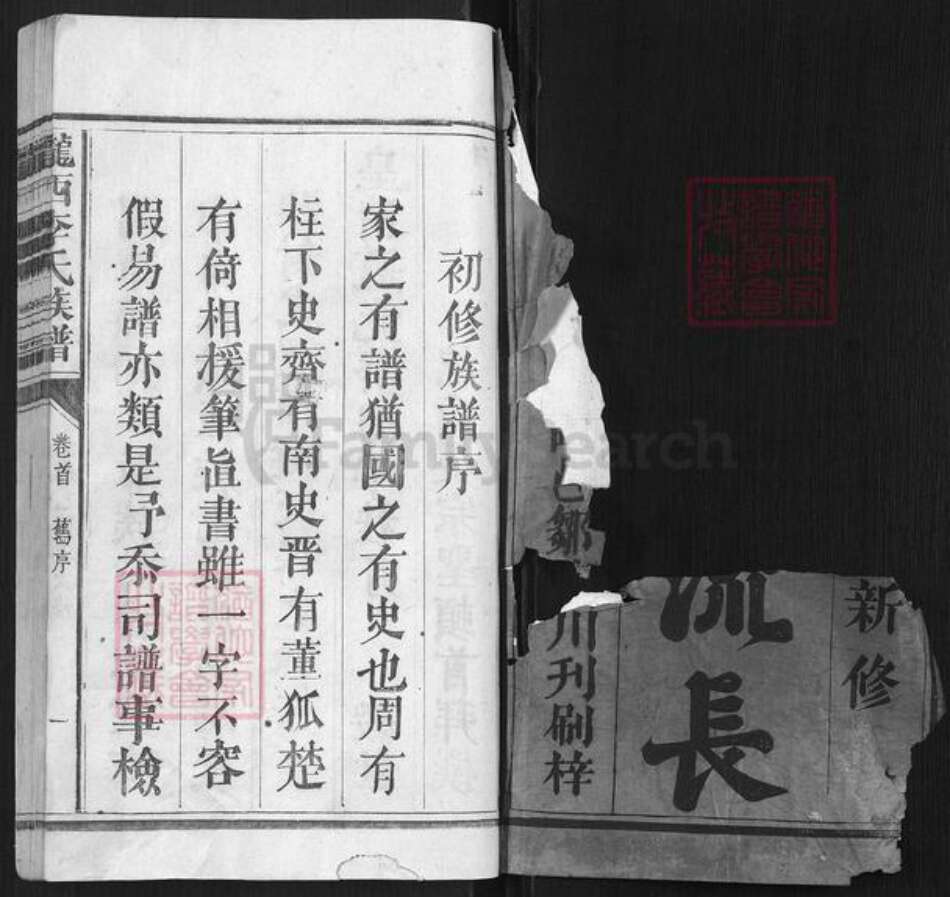 新修
流長
川刊刷梓
鄒
初修族譜序
家之有譜猶國之有史也周有
柱下史齊有南史晋有董狐楚
有倚相援筆直書雖一字不容
假易譜亦類是予忝司譜事檢
隴西李氏族譜
卷首 舊序
一
FamilySearch